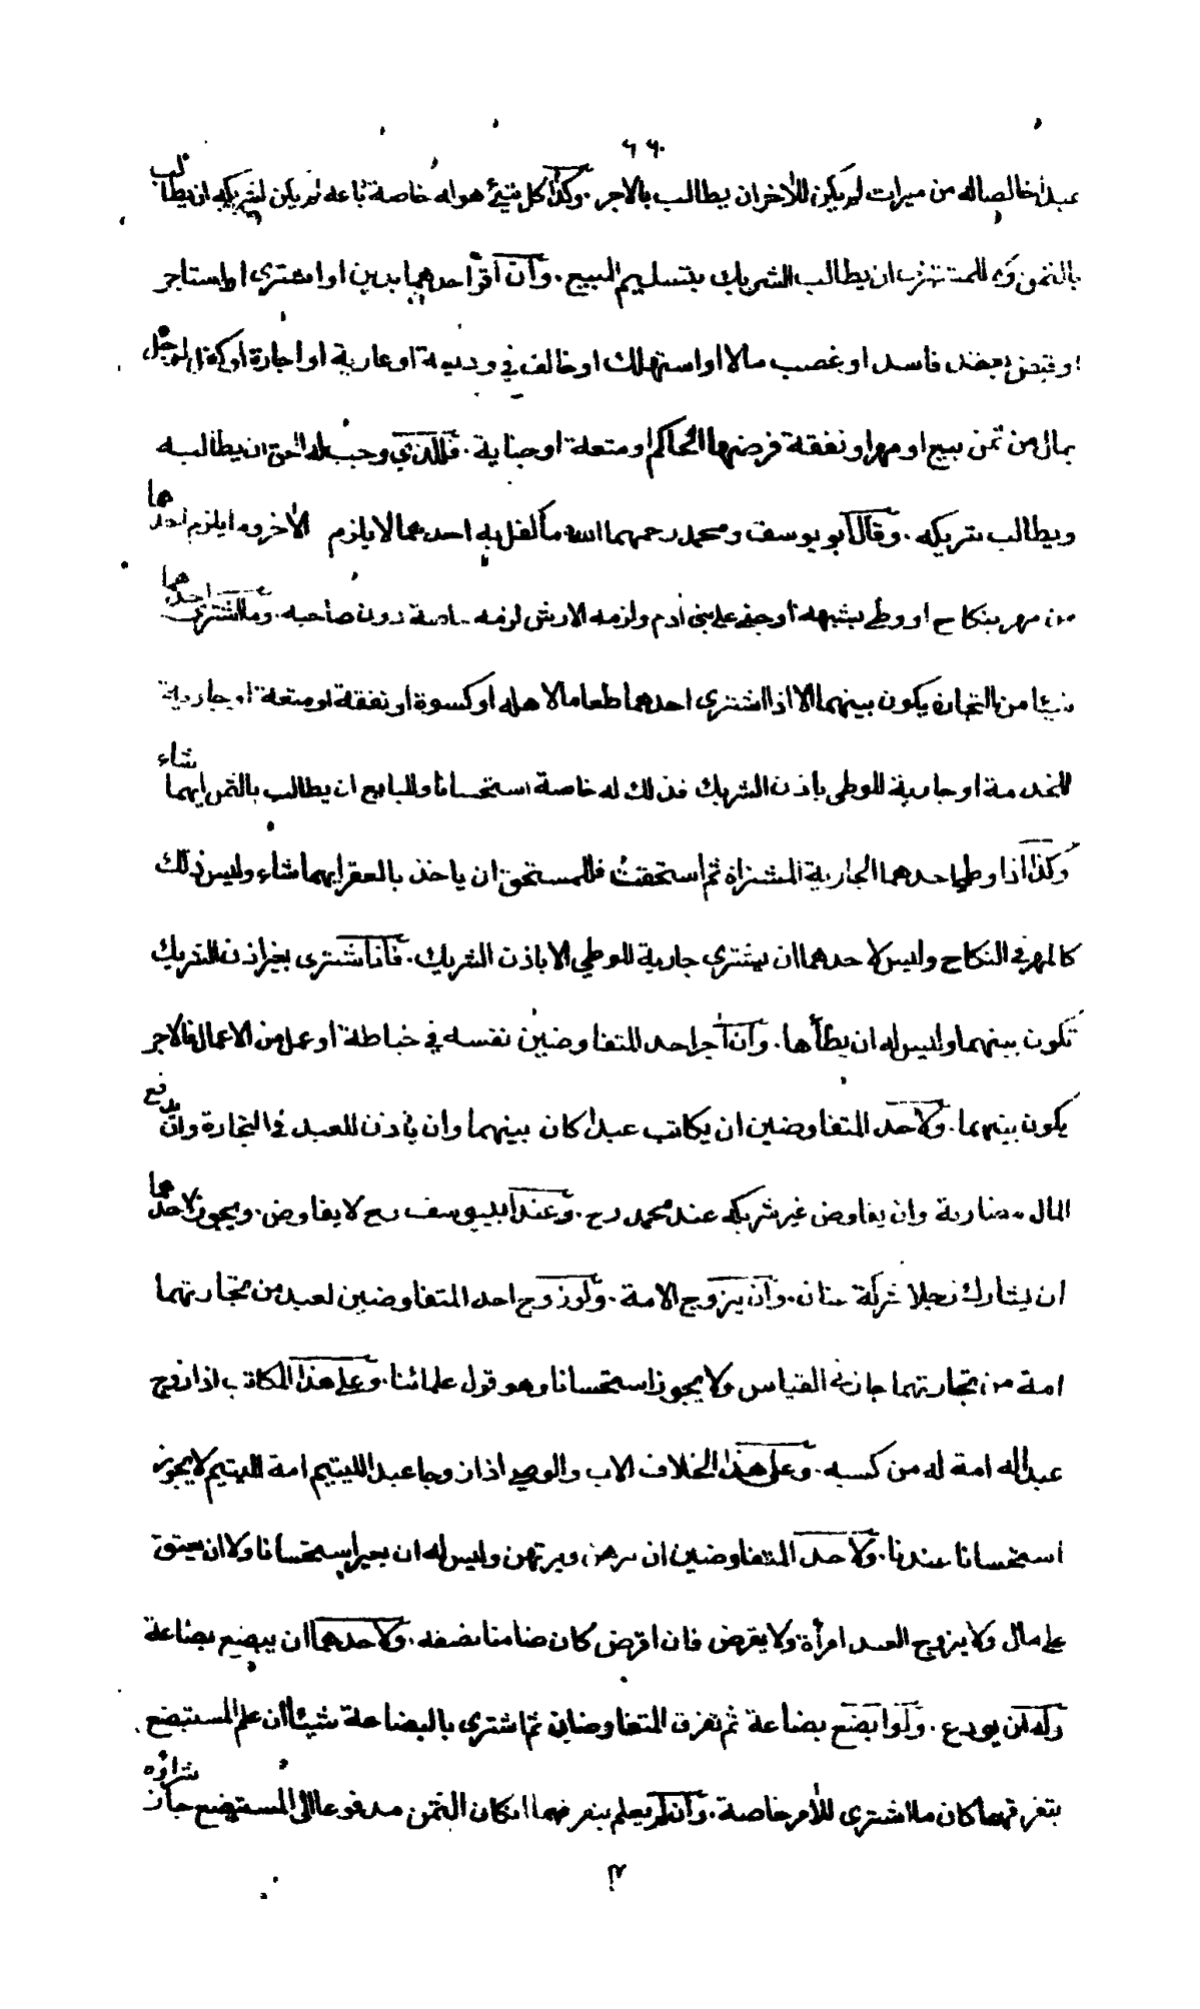 ٦٦
عبدا خالصا له من ميراث لم يكن للآخر ان يطالب بالاجر . وكذا كل شيئ هو له خاصة باعه لم يكن لشريكه ان يطالب
بالثمن ولا للمشتري ان يطالب الشريك بتسليم المبيع . وان اقر احدهما بدين او اشترى او استاجر
او قبض بعقد فاسد او غصب مالا او استهلك او خالف في وديعة او عارية او اجارة او كفل لرجل
بمال من ثمن بيع او مهر او نفقة فرضها الحاكم او متعة او جناية . فللذي وجب له الحق ان يطالبه
ويطالب شريكه . وقال ابو يوسف ومحمد رحمهما الله ما كفل به احدهما لا يلزم الآخر وما يلزم احدهما
من مهر بنكاح او وطي بشبهة او جنى على بني آدم ولزمه الارش لزمه خاصة دون صاحبه . وما اشترى احدهما
شيئا من التجارة يكون بينهما الا اذا اشترى احدهما طعاما لاهله او كسوة او نفقة او متعة او جارية
للخدمة او جارية للوطي باذن الشريك فذلك له خاصة استحسانا وللبايع ان يطالب بالثمن ايهما شاء
وكذا اذا وطي احدهما الجارية المشتراة ثم استحقت فللمستحق ان ياخذ بالعقر ايهما شاء وليس ذلك
كالمهر في النكاح وليس لاحدهما ان يشتري جارية للوطي الا باذن الشريك . فان اشترى بغير اذن الشريك
تكون بينهما وليس له ان يطأها . وان آجر احد المتفاوضين نفسه في خياطة او عمل من الاعمال فالاجر
يكون بينهما . ولاحد المتفاوضين ان يكاتب عبدا كان بينهما وان يأذن للعبد في التجارة وان يدفع
المال مضاربة وان يفاوض غير شريكه عند محمد رح . وعند ابي يوسف رح لا يفاوض . ويجوز لاحدهما
ان يشارك رجلا شركة عنان . وان يزوج الامة . ولو زوج احد المتفاوضين لعبد من تجارتهما
امة من تجارتهما جاز في القياس ولا يجوز استحسانا وهو قول علمائنا . وعلى هذا المكاتب اذا زوج
عبدا له امة له من كسبه . وعلى هذا الخلاف الاب والوصي اذا زوجا عبد اليتيم امة اليتيم لا يجوز
استحسانا عندنا . ولاحد المتفاوضين ان يرهن ويرتهن وليس له ان يعير استحسانا ولا ان يعتق
على مال ولا يزوج العبد امرأة ولا يقرض فان اقرض كان ضامنا نصفه . ولاحدهما ان يبضع بضاعة
وله ان يودع . ولو ابضع بضاعة ثم تفرق المتفاوضان ثم اشترى بالبضاعة شيئا ان علم المستبضع
بتفرقهما كان ما اشترى للآمر خاصة . وان لم يعلم بتفرقهما ان كان الثمن مدفوعا الى المستبضع جاز شراؤه